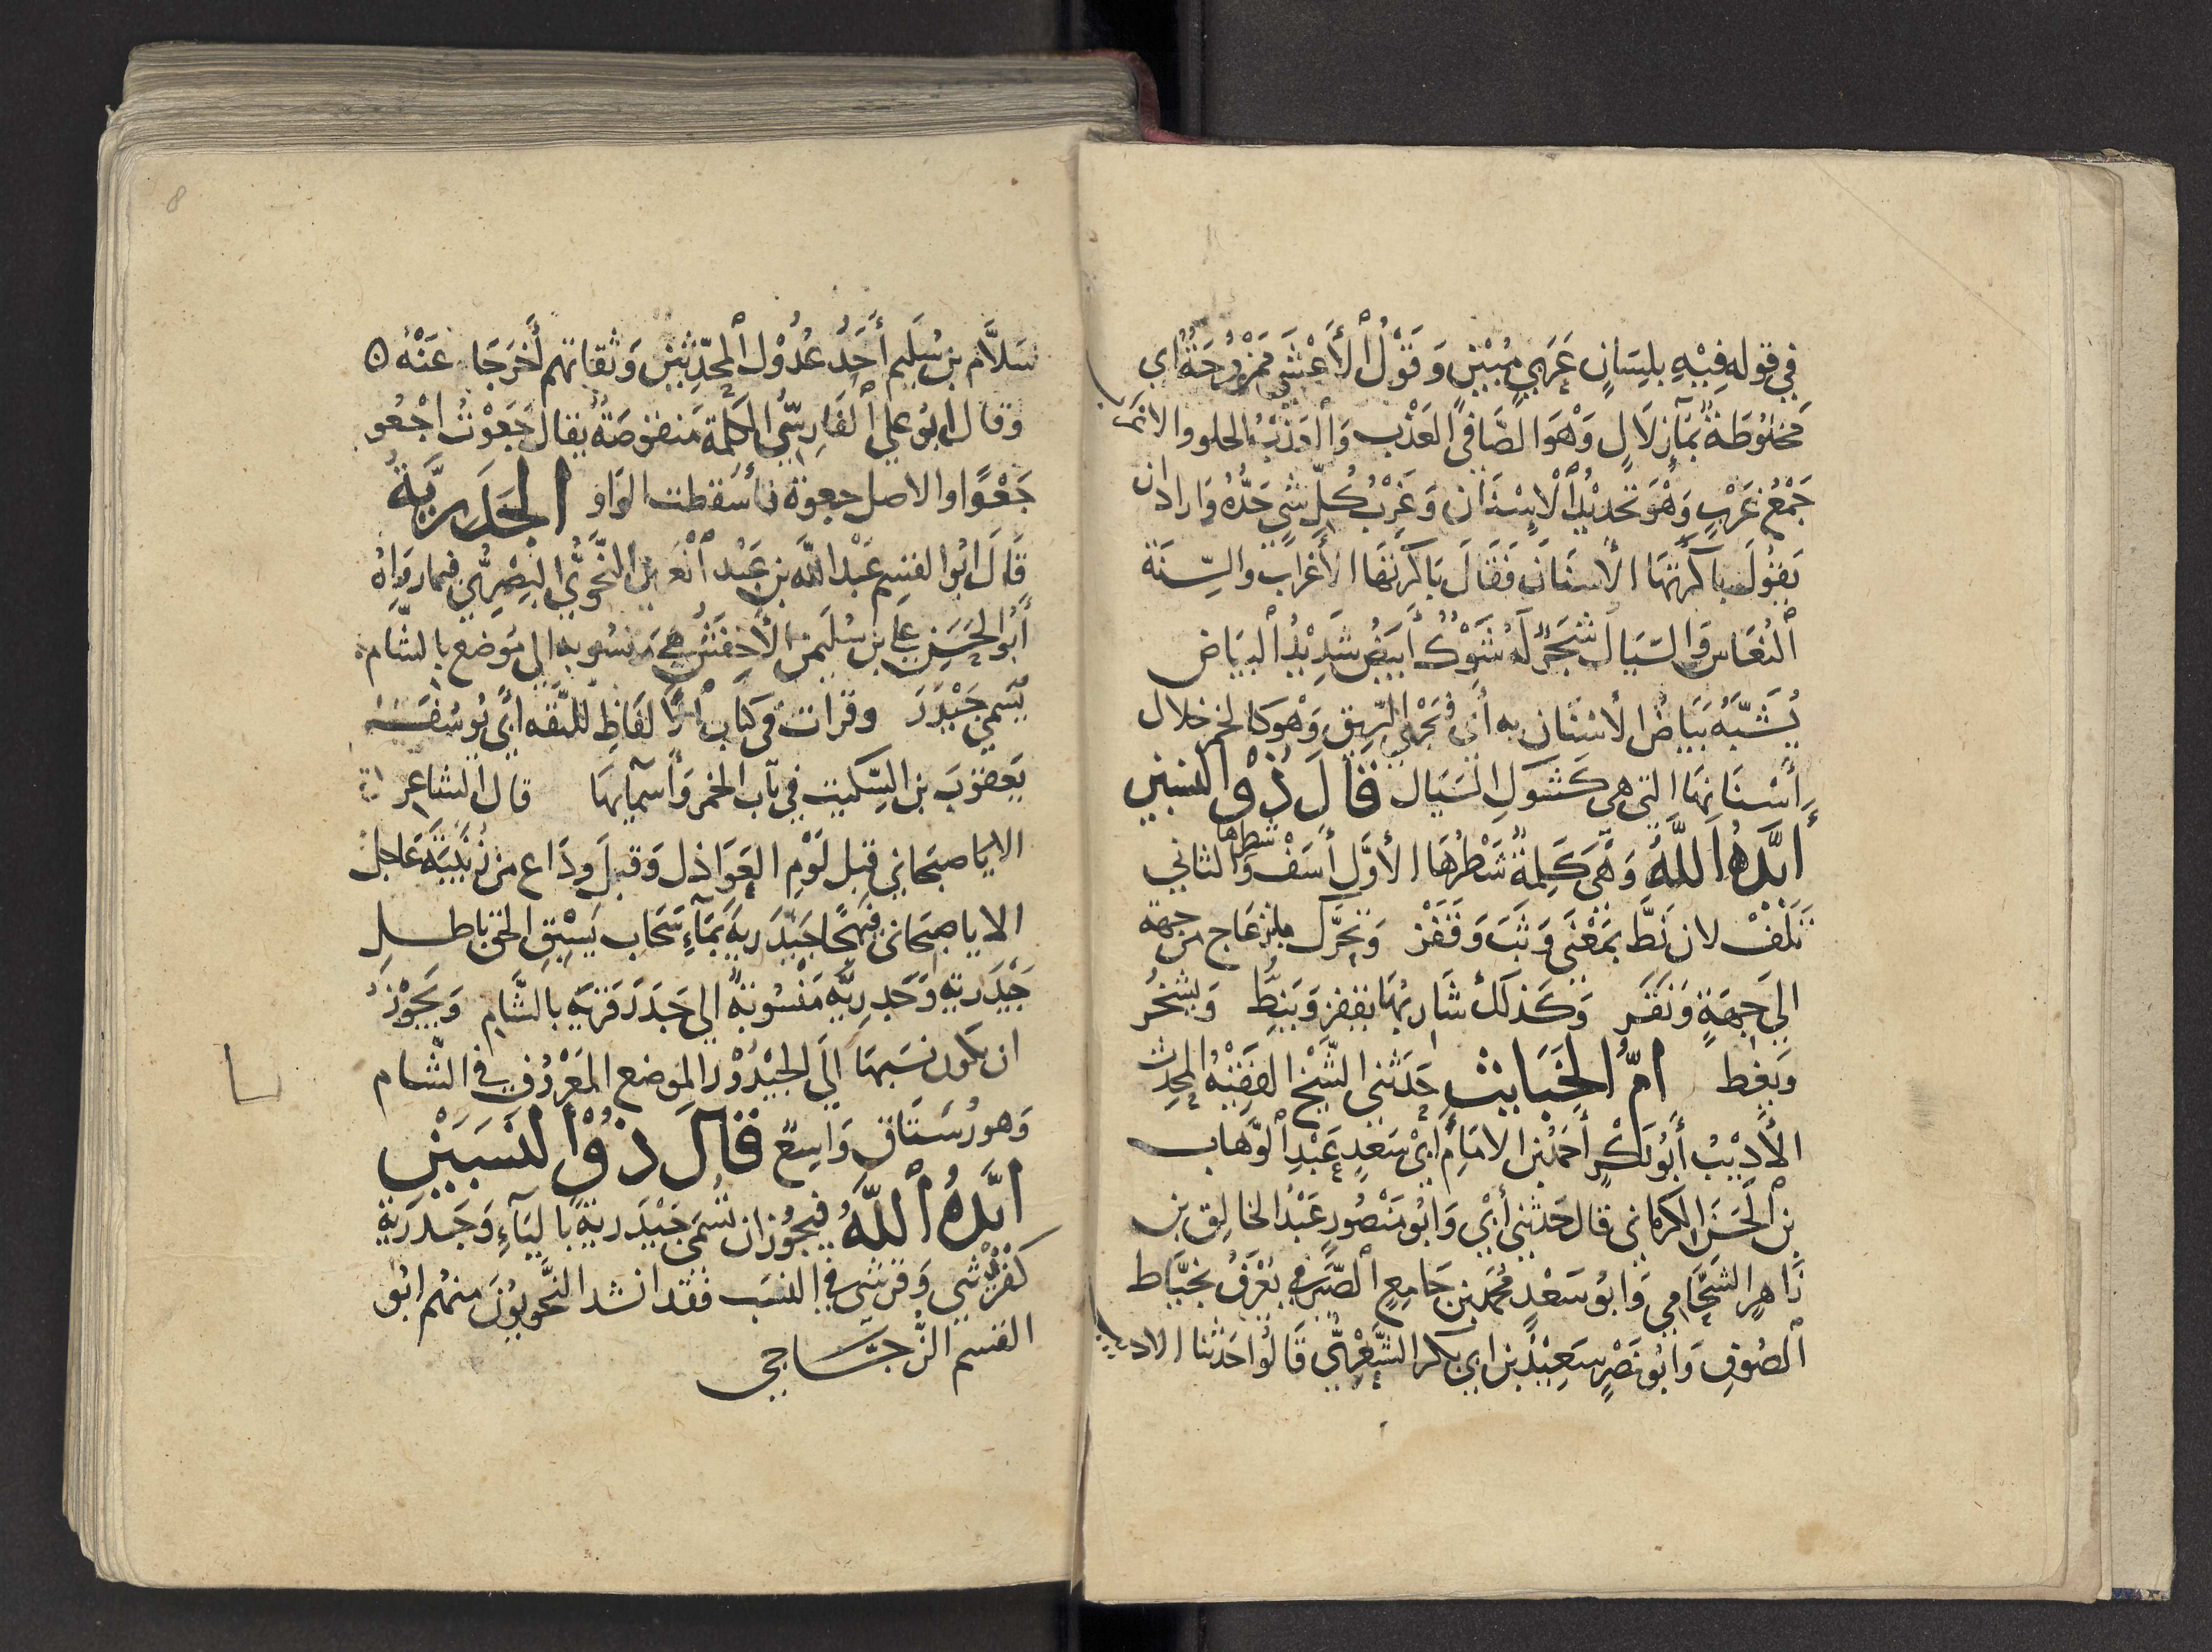 في قوله فِيْهِ بِلِسَانٍ عَرَبيٍ مُبِيْنٍ وَقَوْلُ الأَعْشَى مَمْزُوْجَةٌ اي
مَخلُوطَةٌ بمَآءٍ زلَالٍ وَهْوَ الصَّافي العَذْب وَالعَذْبُ الحلو والاغراب
جَمْعُ غَرْبٍ وَهْوَ تَحدِيْدُ الْاَسْنَان وَغَرْبُ كُلِّ شَيٍ حَدُّهُ وَاراد ان
يَقُولَ باكرتهَا الأسنَانَ فَقَالَ بَاكَرتهَا الأَغرَابَ والسِّنَة
اْلنُعَاس وَالسَّيَال شَجَرٌ لَهُ شَوْكٌ أبيَضُ شَدِيْدُ الْبَيَاض
يُشَبَّهُ بَيَاضُ الأسْنَان به أي تَجْري الرِّيق وَهْوَ كالخمر خلال
أسْنَانِهَا التي هي كَشَوكِ السَيَال قَالَ ذُوْ النسبين
أيَّدَهُ اللهُ وَهْيَ كَلِمَةٌ شَطْرُهَا الأوّل أسَفْ وَشطرها الثاني
تَلَفْ لان نَطَّ بمَعْنَى وَثَبَ وَقَفَز وَتحَرَّك بانزعَاج من جهة
الي جهَةٍ وَنَفَر وَكَذلك شَاربُهَا يَقفز وَينِطّ وَيشخُر
وَيغط امّ الخَبَايث حَدَثني الشّيخ الفَقِيْهُ المحِدث
الأَدِيْبُ أبُو بَكْرٍ أحمَدُ بن الامَامِ أبيْ سَعدٍ عَبْدِ الوَهاب
بن الحَسَن الكرماني قال حَدثني أبيْ وَابُو مَنْصُورٍ عَبْدُ الخالِق بن
زَاهِرٍ الشحَّامي وَابُو سَعْدٍ مُحمَد بن جَامِعٍ الصَّيرَفي يُعْرَفُ بخيَّاط
الصُوفِ وَابُو نَصْرٍ سَعِيْدُ بن ابي بكر الشّعْرِيُّ قَالُوا حَدثنا الاديب
سَلَّام بن سُلَيم أحَدُ عُدُوْل المحدّثيِن وَثقاتهم أخرَجَا عَنْهُ ه
وَقال ابُو علي الفَارِسِيُّ الكَلِمة مَنقوصَةٌ يقال جَعَوْتُ اجْعُو
جَعْوًا والاصل جعوة فأسقطت الوَاو الجَدَرِيَّةُ
قَالَ ابُو القسِم عَبْد الله بن عَبْد الْعَزِيْز النَّحوِيُّ البَصِرِيُّ فيمَا رَوَاهُ
أبُو الحَسَن علي بن سُليمن الأخفَش هِيَ مَنسُوبه الي مَوضع بالشَّام
يُسَمي جَيْدَر وقرات في كتاب الألفاظِ للثقه ابي يُوسُفَ
يَعقوبَ بن السِّكيت في بَاب الخمر وَأسمآيهَا قال الشاعر
الا يَا صبحَاني قبل لَوْم العَوَاذل وَقبل ودَاع من زُنَيْبَةَ عَاجل
الا يا صبحَاني فَيهجًا جَيْدَريةً بمَآءِ سَحَاب يَسِبْق الحَق باطلِ
جَيْدَرية وَجَدرِيَّه مَنسُوبةٌ الي جَدَرَ قريَه بالشَّام وَيَجُوْز
ان يكون نسَبهَا الَي الجَيْدُوْر المَوضع المَعْرُوْف في الشام
وَهو رُسْتَاق وَاسِعٌ قَالَ ذوُ النسَبَيْنِ
ايَّدَهُ اللهُ فيجُوز ان تُسَمي جَيْدَريةً بالياَءِ وَجَدَريّة
كَقريْشي وَقرشي في النسَب فقد انشد النَّحويُوْنَ منهُم ابُو
القسم الزَّجَّاجي
8